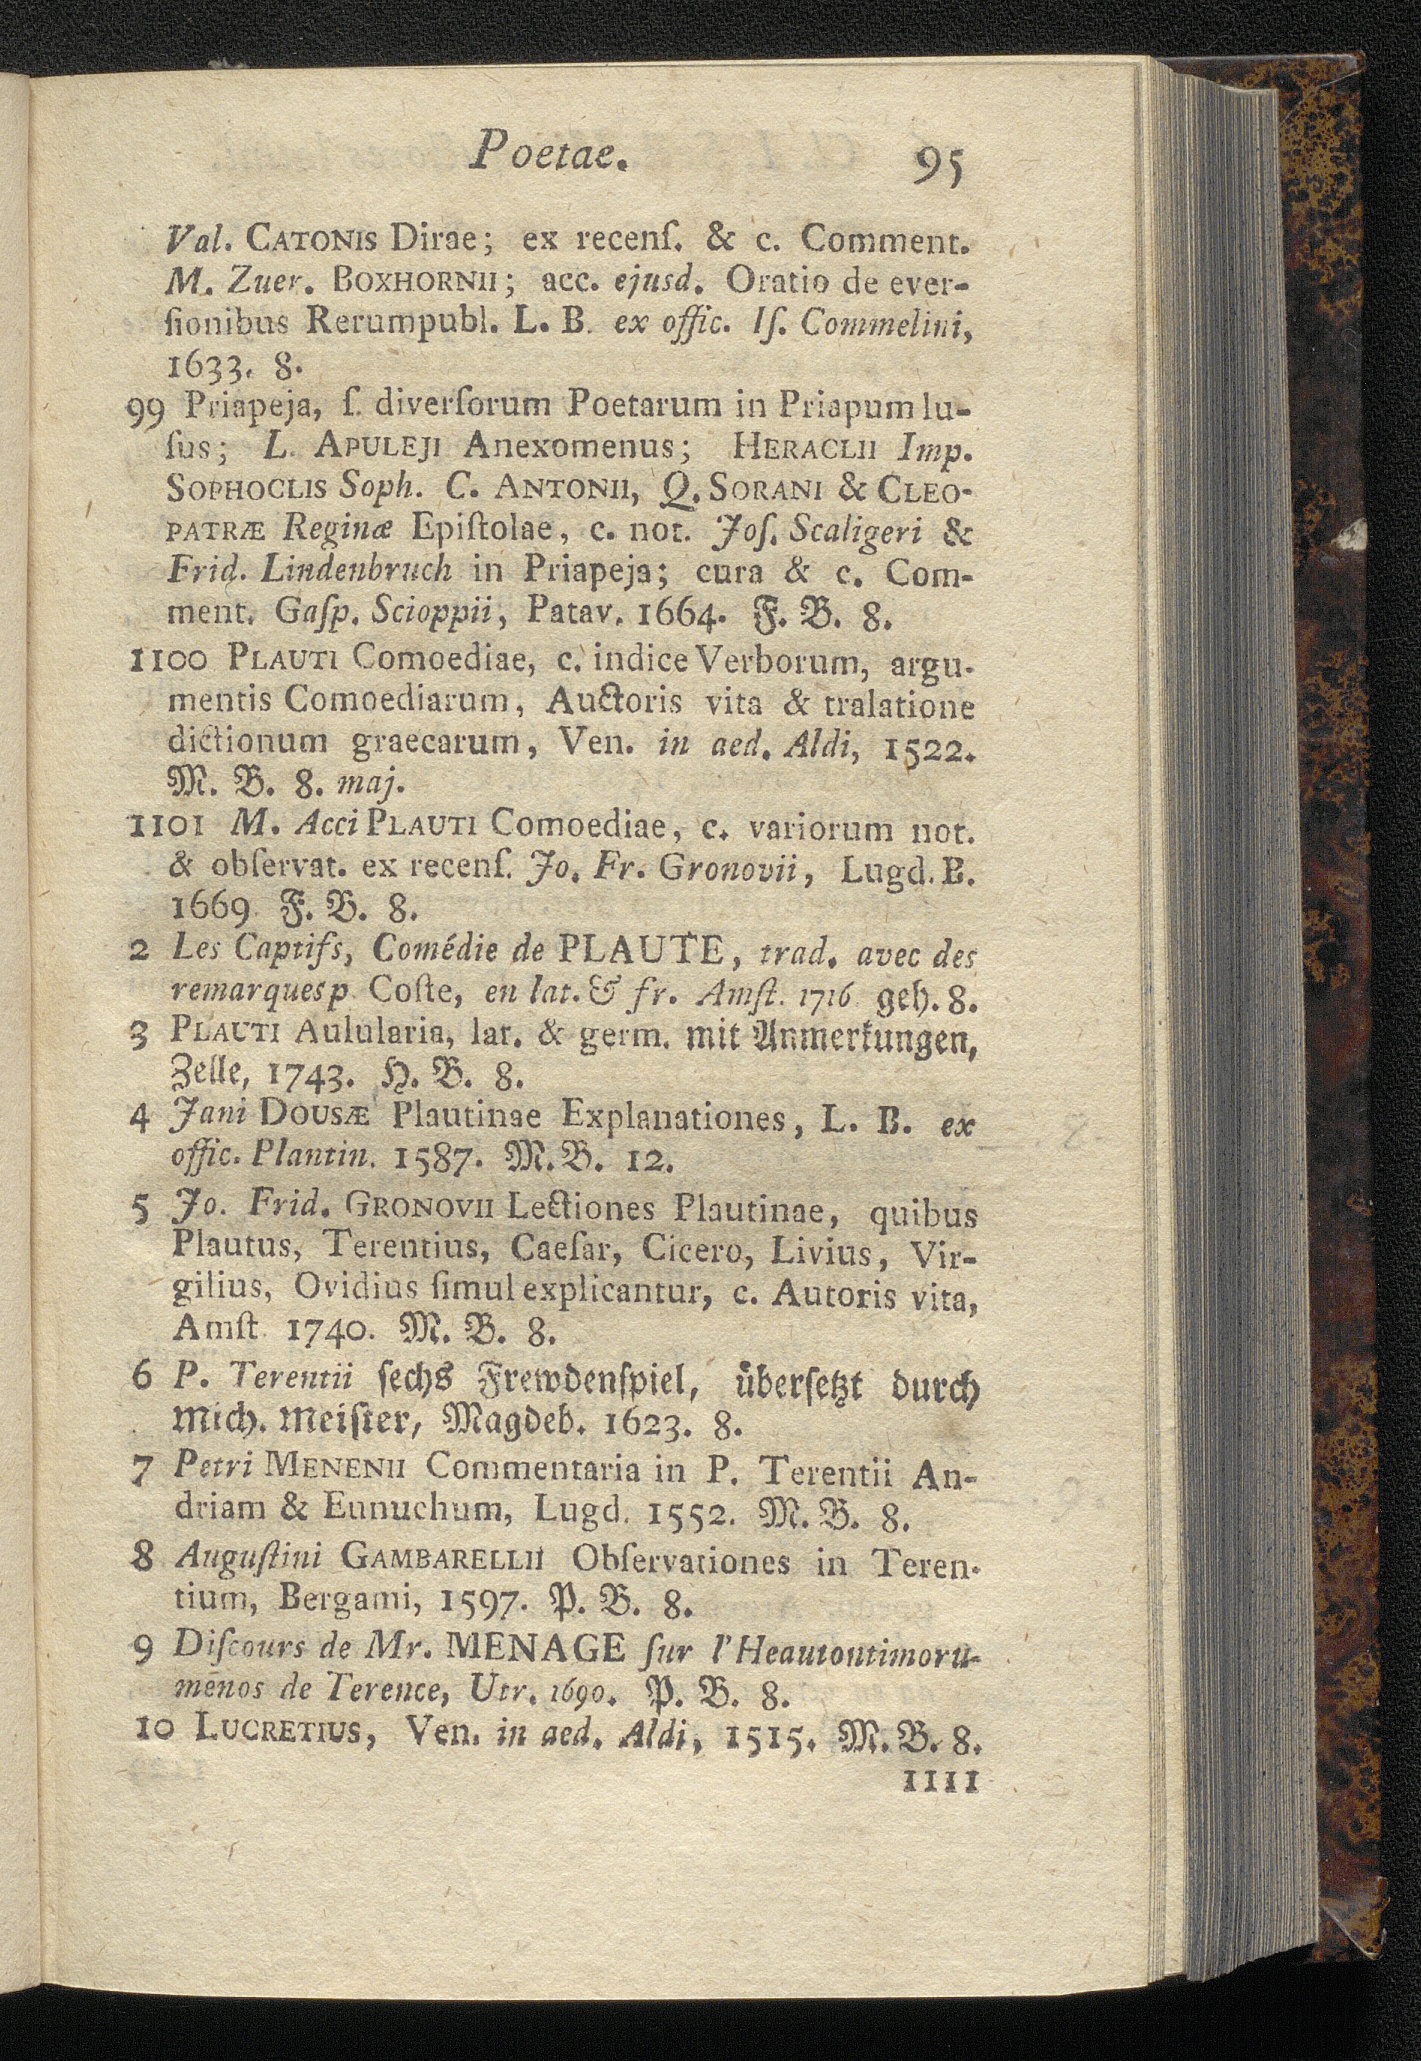 Poetae. 95
Val. CATONIS Dirae; ex recenſ. & c. Comment.
M. Zuer. BOXHORNII; acc. ejusd. Oratio de ever-
ſionibus Rerumpubl. L. B. ex offic. Iſ. Commelini,
1633. 8.
99 Priapeja, ſ. diverſorum Poetarum in Priapum lu-
ſus; L. APULEJI Anexomenus; HERACLII Imp.
SOPHOCLIS Soph. C. ANTONII, Q. SORANI & CLEO-
PATRÆ Reginæ Epiſtolae, c. not. Joſ. Scaligeri &
Frid. Lindenbruch in Priapeja; cura & c. Com-
ment. Gaſp. Scioppii, Patav. 1664. F. B. 8.
1100 PLAUTI Comoediae, c. indice Verborum, argu-
mentis Comoediarum, Auctoris vita & tralatione
dictionum graecarum, Ven. in aed. Aldi, 1522.
M. B. 8. maj.
1101 M. Acci PLAUTI Comoediae, c. variorum not.
& obſervat. ex recenſ. Jo. Fr. Gronovii, Lugd. B.
1669. F. B. 8.
2 Les Captifs, Comédie de PLAUTE, trad. avec des
remarques p. Coſte, en lat. & fr. Amſt. 1716. geh. 8.
3 PLAUTI Aulularia, lat. & germ. mit Anmerkungen,
Zelle, 1743. H. B. 8.
4 Jani DOUSÆ Plautinae Explanationes, L. B. ex
offic. Plantin. 1587. M. B. 12.
5 Jo. Frid. GRONOVII Lectiones Plautinae, quibus
Plautus, Terentius, Caeſar, Cicero, Livius, Vir-
gilius, Ovidius ſimul explicantur, c. Autoris vita,
Amſt. 1740. M. B. 8.
6 P. Terentii ſechs Frewdenſpiel, überſetzt durch
Mich. Meiſter, Magdeb. 1623. 8.
7 Petri MENENII Commentaria in P. Terentii An-
driam & Eunuchum, Lugd. 1552. M. B. 8.
8 Auguſtini GAMBARELLII Obſervationes in Teren-
tium, Bergami, 1597. P. B. 8.
9 Diſcours de Mr. MENAGE ſur l'Heautontimoru-
menos de Terence, Utr. 1690. P. B. 8.
10 LUCRETIUS, Ven. in aed. Aldi, 1515. M. B. 8.
1111